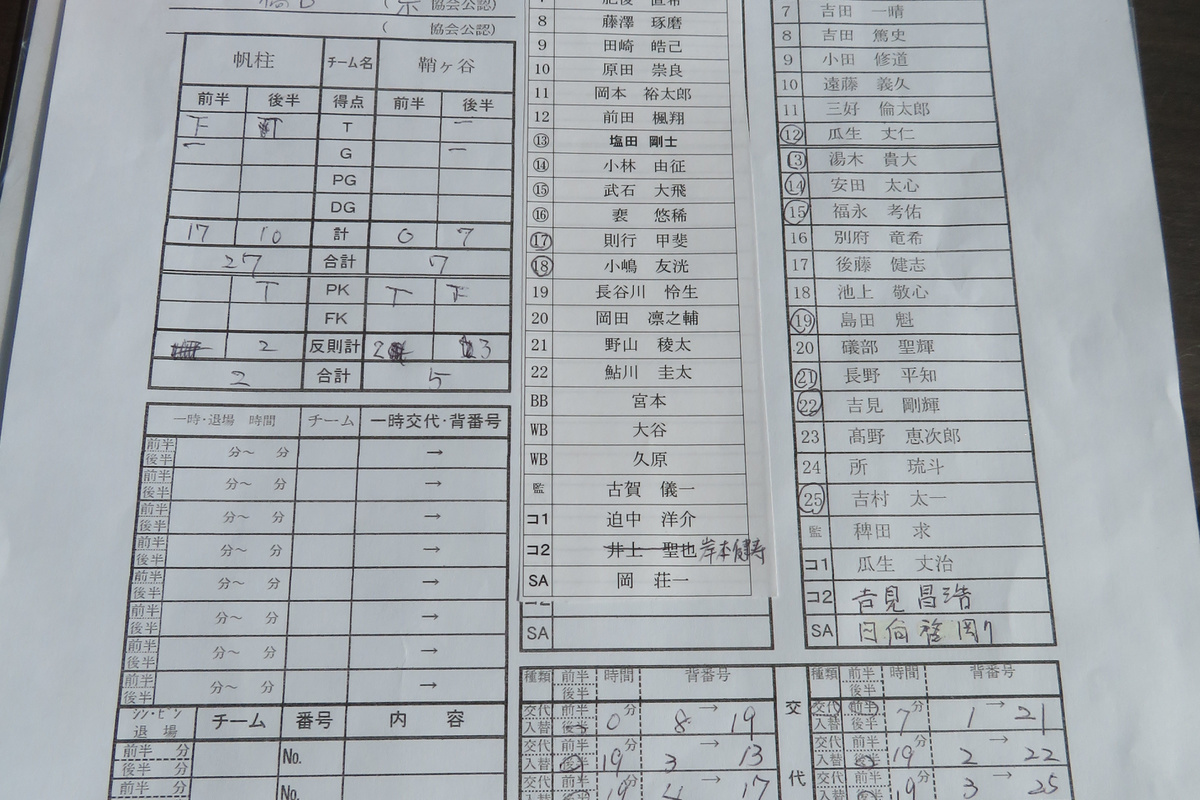 協会公認)
( 協会公認)
帆柱 チーム名 鞘ヶ谷
前半 後半 得点 前半 後半
T
G
PG
DG
17 10 計 0 7
27 合計 7
PK
FK
2 反則計 2 3
2 合計 5
一時・退場 時間 チーム 一時交代・背番号
前半 後半 分～ 分 →
前半 後半 分～ 分 →
前半 後半 分～ 分 →
前半 後半 分～ 分 →
前半 後半 分～ 分 →
前半 後半 分～ 分 →
前半 後半 分～ 分 →
前半 後半 分～ 分 →
シン・ビン 退場 チーム 番号 内容
前半 分 後半 分 No.
前半 分 No.
8 藤澤 琢磨
9 田崎 皓己
10 原田 崇良
11 岡本 裕太郎
12 前田 楓翔
⑬ 塩田 剛士
⑭ 小林 由征
⑮ 武石 大飛
⑯ 裵 悠稀
⑰ 則行 甲斐
⑱ 小嶋 友洸
19 長谷川 怜生
20 岡田 凛之輔
21 野山 稜太
22 鮎川 圭太
BB 宮本
WB 大谷
WB 久原
監 古賀 儀一
コ1 迫中 洋介
コ2 井上 聖也 岸本健寿
SA 岡 荘一
SA
7 吉田 一晴
8 吉田 篤史
9 小田 修道
10 遠藤 義久
11 三好 倫太郎
⑫ 瓜生 丈仁
⑬ 湯木 貴大
⑭ 安田 太心
⑮ 福永 考佑
16 別府 竜希
17 後藤 健志
18 池上 敬心
⑲ 島田 魁
20 磯部 聖輝
㉑ 長野 平知
㉒ 吉見 剛輝
23 髙野 恵次郎
24 所 琉斗
㉕ 吉村 太一
監 稗田 求
コ1 瓜生 丈治
コ2 吉見 昌浩
SA
種類 前半 後半 時間 背番号
交代 入替 前半 後半 0分 8 → 19
交代 入替 前半 後半 19分 3 → 13
交代 入替 前半 後半 19分 4 → 17
交代
種類 前半 後半 時間 背番号
交代 入替 前半 後半 7分 1 → 21
交代 入替 前半 後半 19分 2 → 22
交代 入替 前半 後半 19分 3 → 25